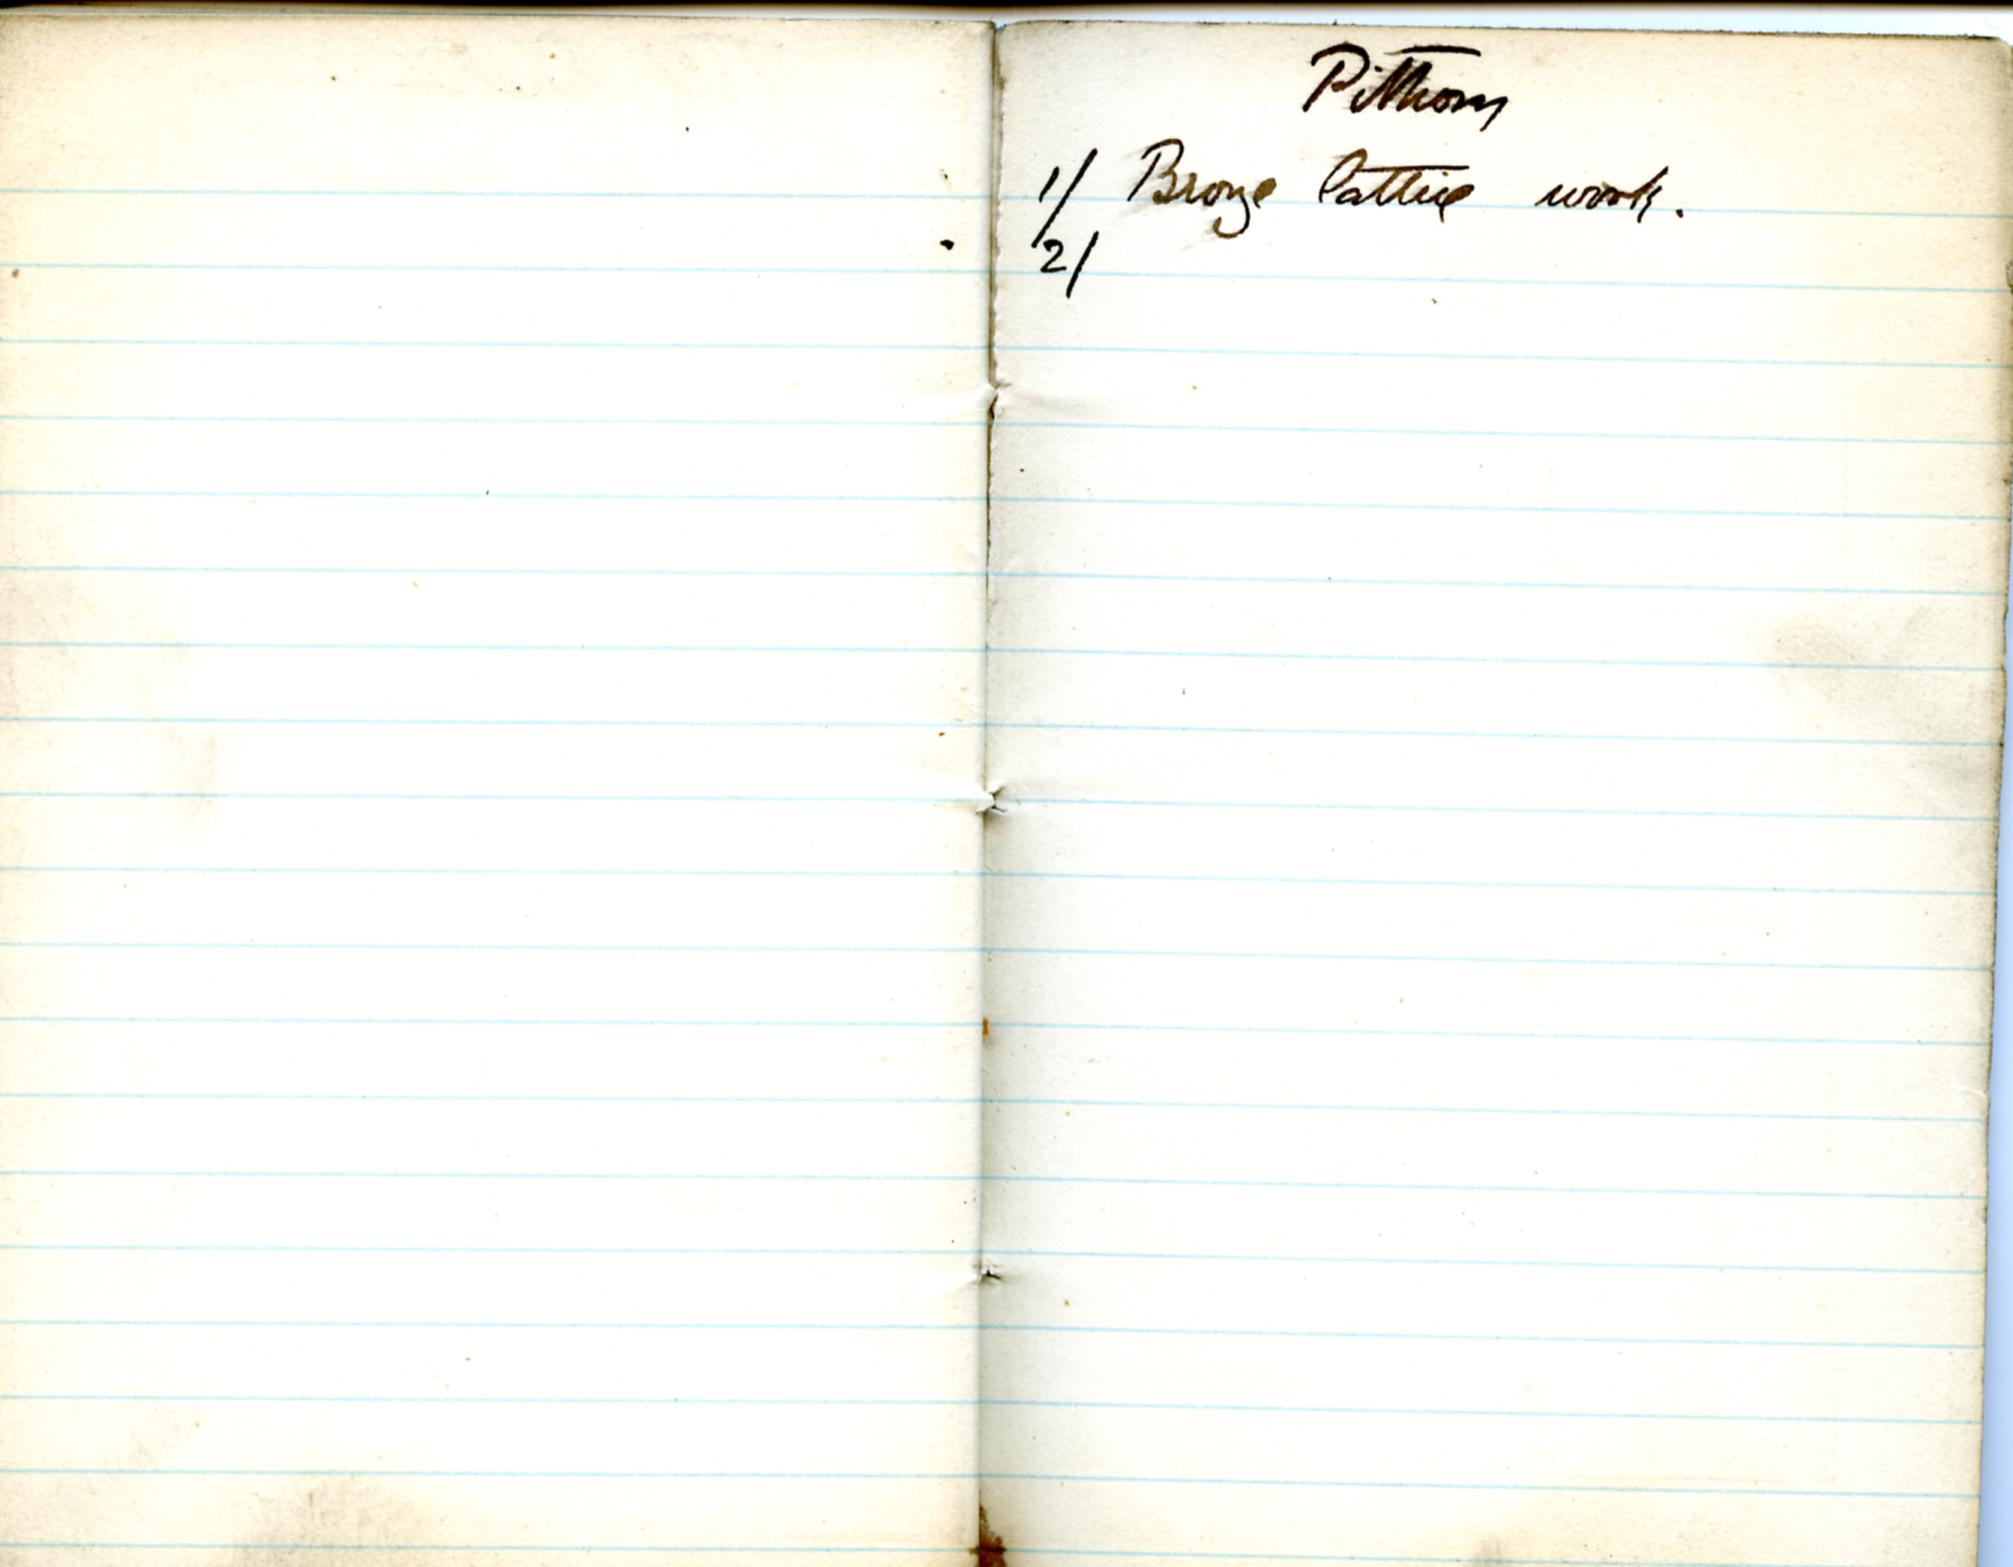 Pithom
1/ Bronze lattice work.
2/